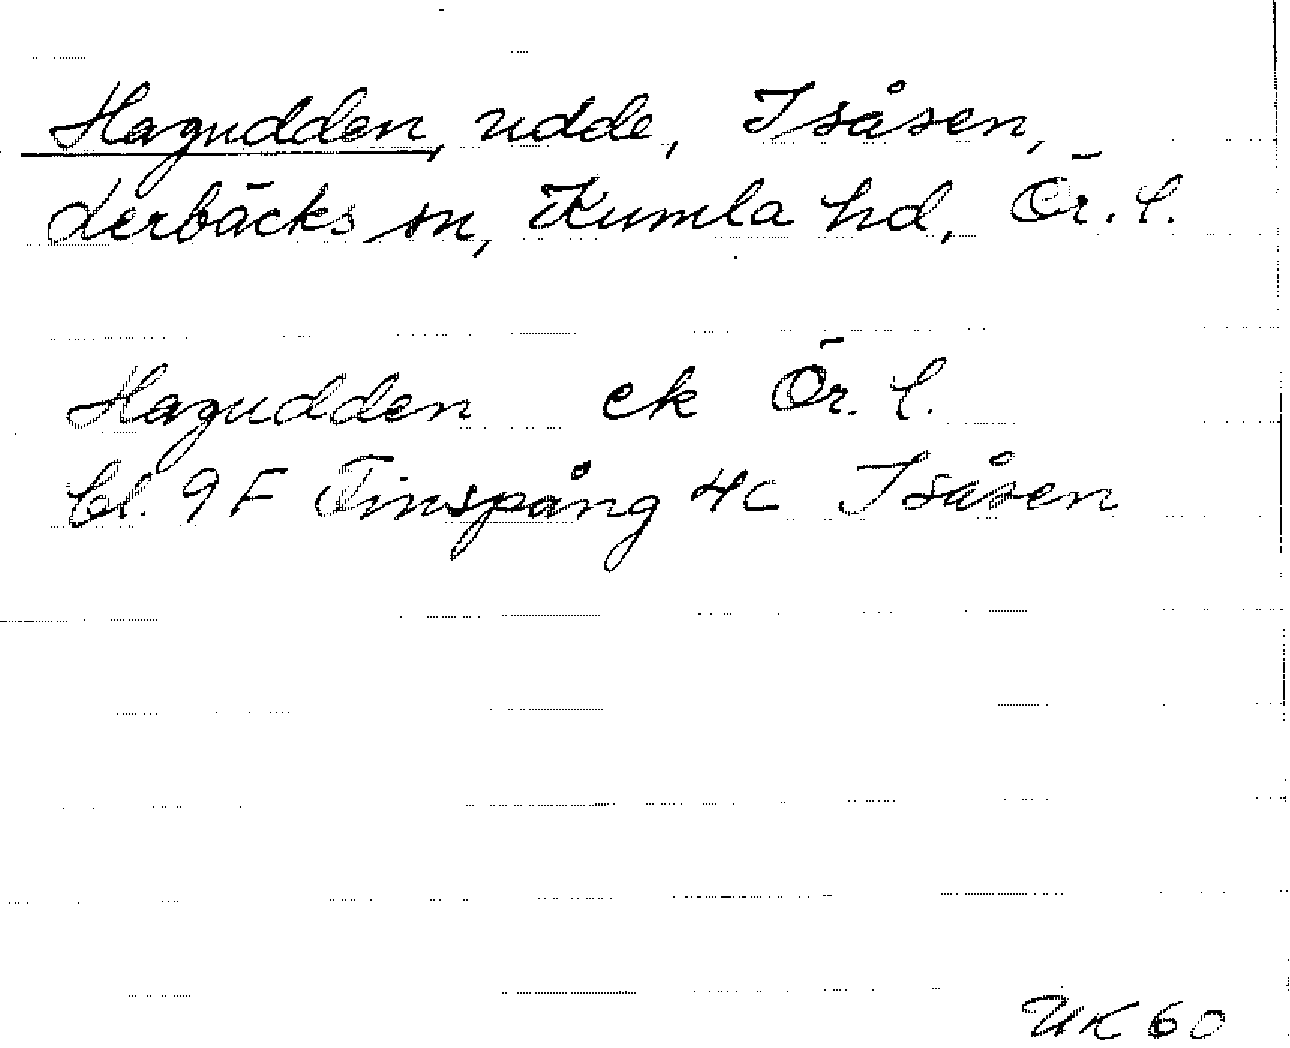 Hagudden, udde, Isåsen,
Lerbäcks sn, Kumla hd, Ör. l.
Hagudden ek Ör. l.
bl. 9F Finspång 4c Isåsen
UK 60